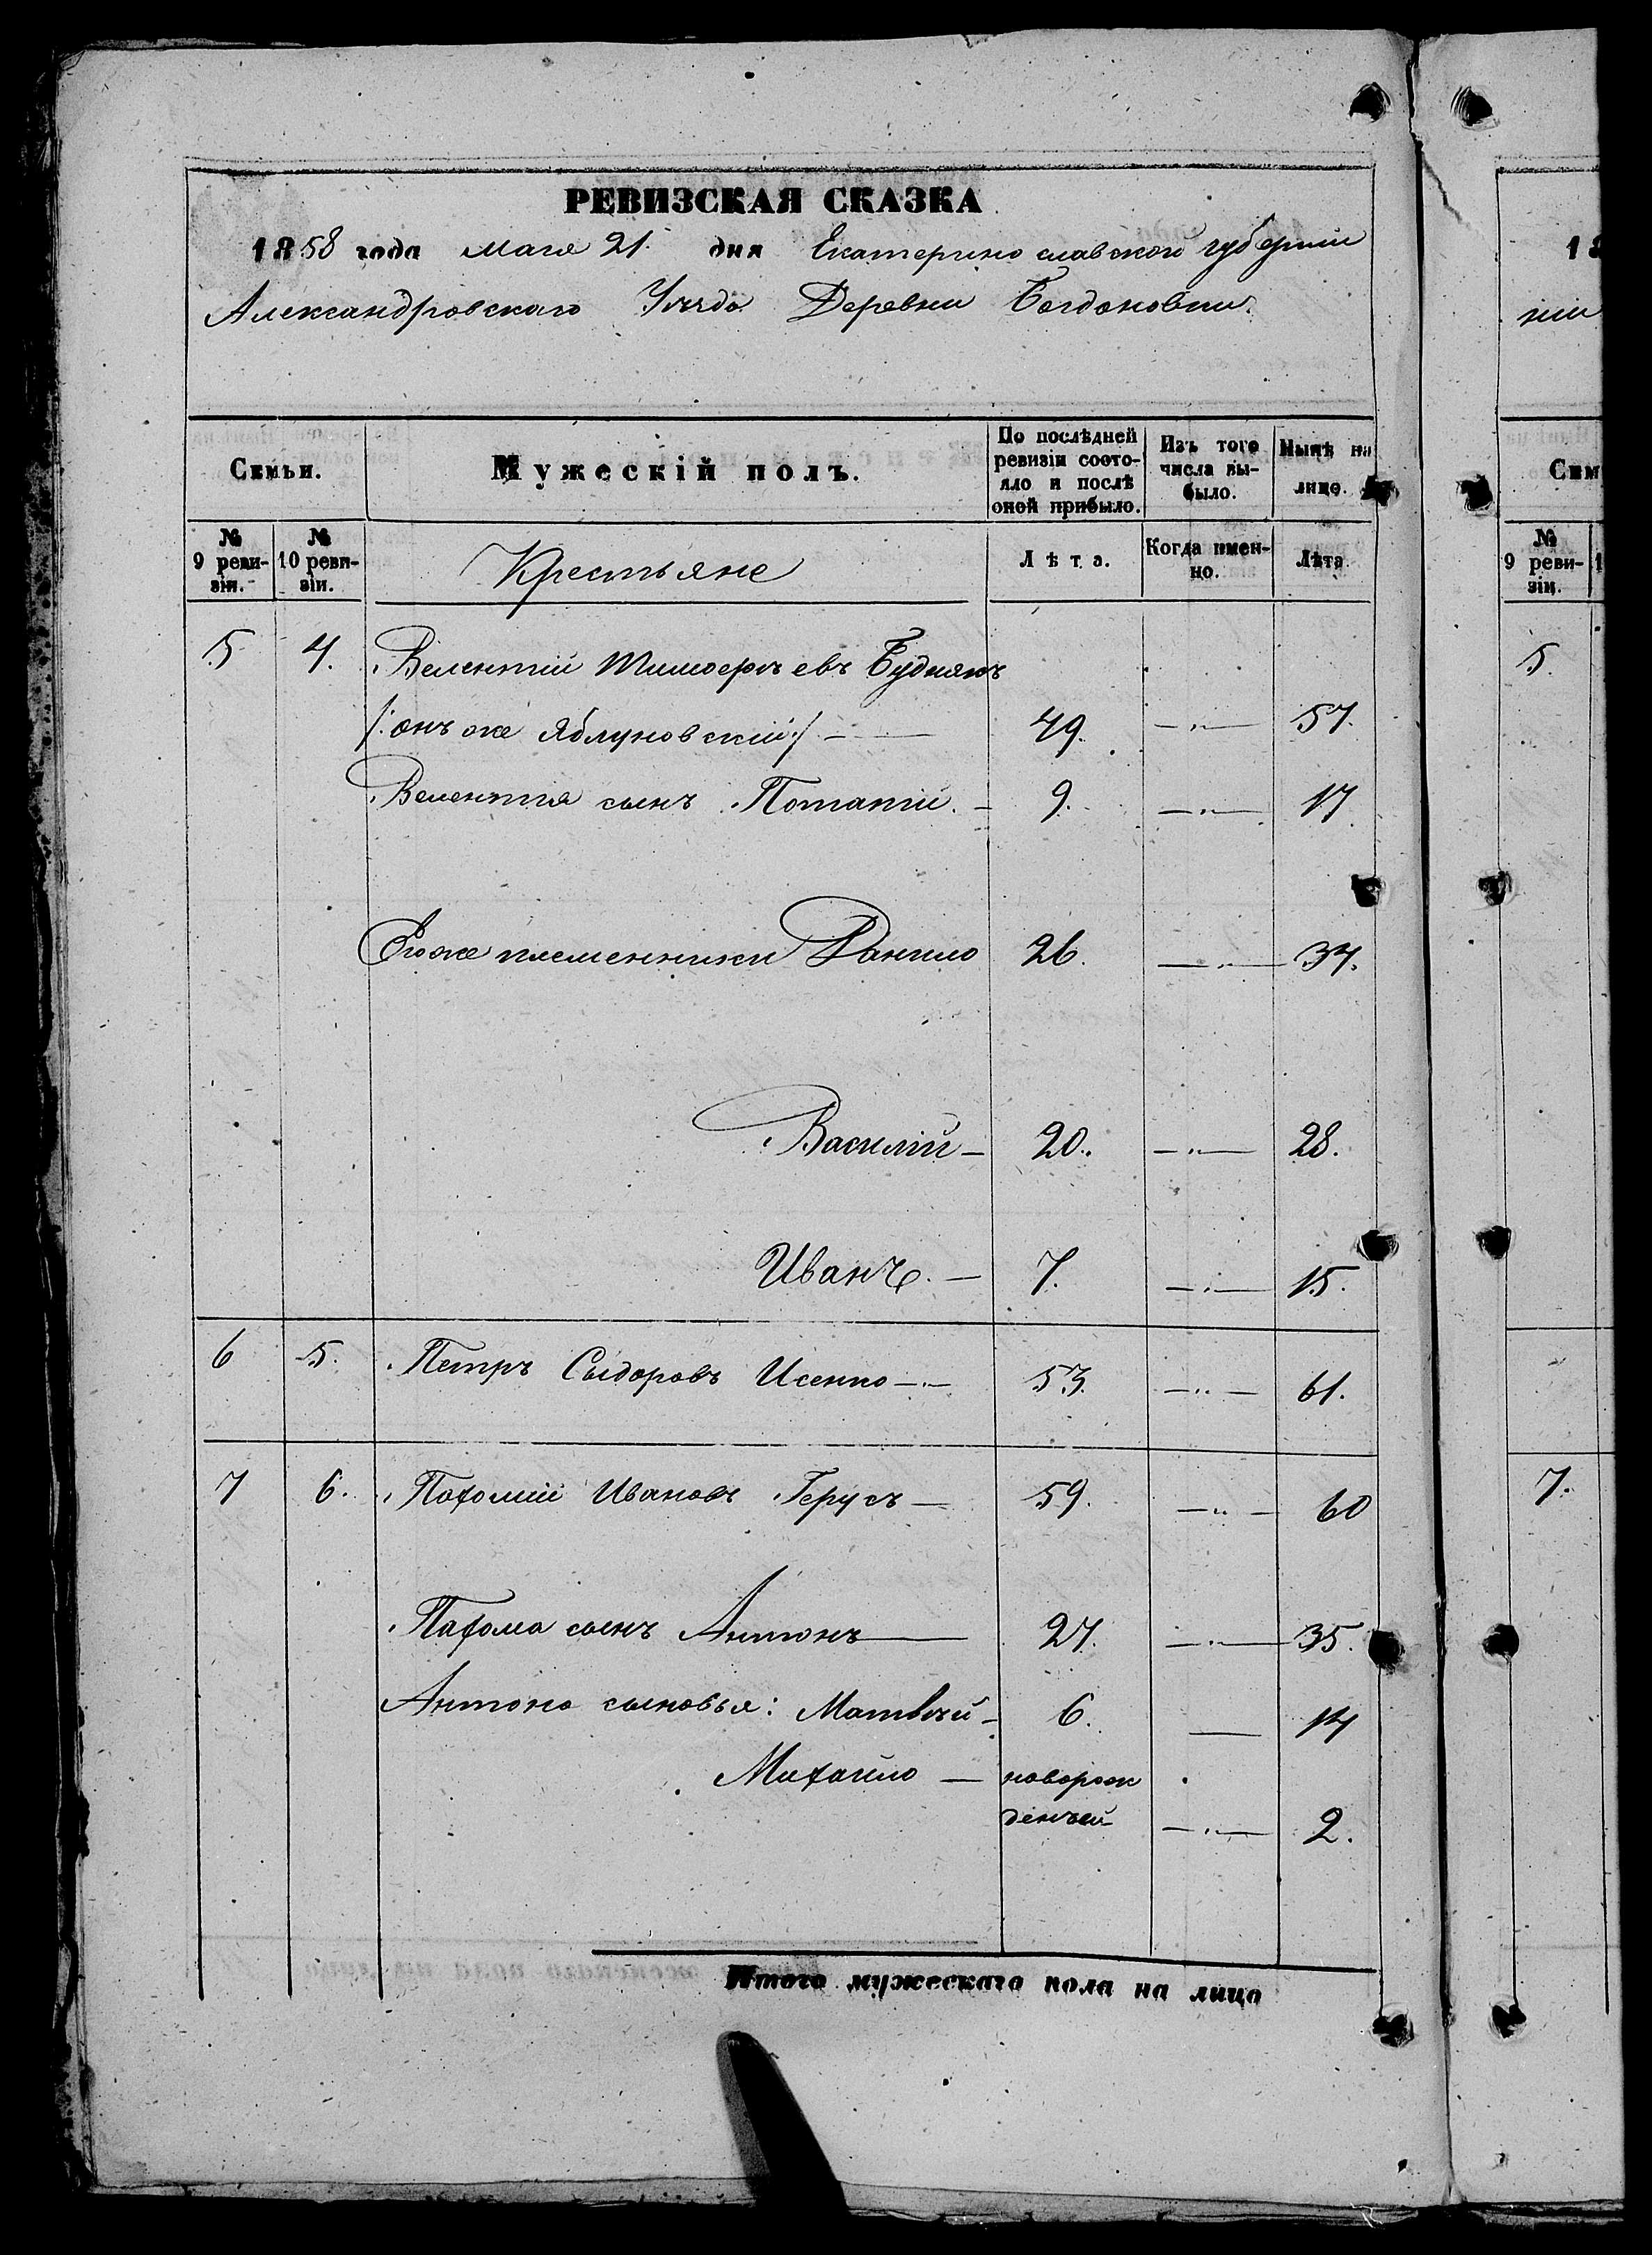 РЕВИЗСКАЯ СКАЗКА
1858 года Мая 21 дня Екатеринославской губерніи
Александровскаго Уѣзда Деревни Богдоновки.
Семьи.
Мужескій полъ.
По послѣдней ревизіи состояло и послѣ оной прибыло.
Изъ того числа выбыло.
Нынѣ на лице.
№ 9 ревизіи.
№ 10 ревизіи.
Крестьяне
Лѣта.
Когда именно.
Лѣта
5 4. Велентій Тимоеръевъ Будникъ
/: онъ же Яблуновскій :/ — 49. —"— 57.
Велентія сынъ Потапій. — 9. —"— 17
Егоже племенники Данило 26. —"— 34.
Василій — 20. —"— 28.
Иванъ. — 7. —"— 15.
6 5. Петръ Сыдоровъ Исенко —"— 53. —"— 61.
7 6. Пахомій Ивановъ Герусъ — 59. —"— 60
Пахома сынъ Антонъ — 27. —"— 35.
Антона сыновья: Матвѣй — 6. — 14
Михайло — новорож
денъей —"— 2.
Итого мужескаго пола на лицо
18
ніи
Сем
№ 9 ревизіи.
1
5.
7.